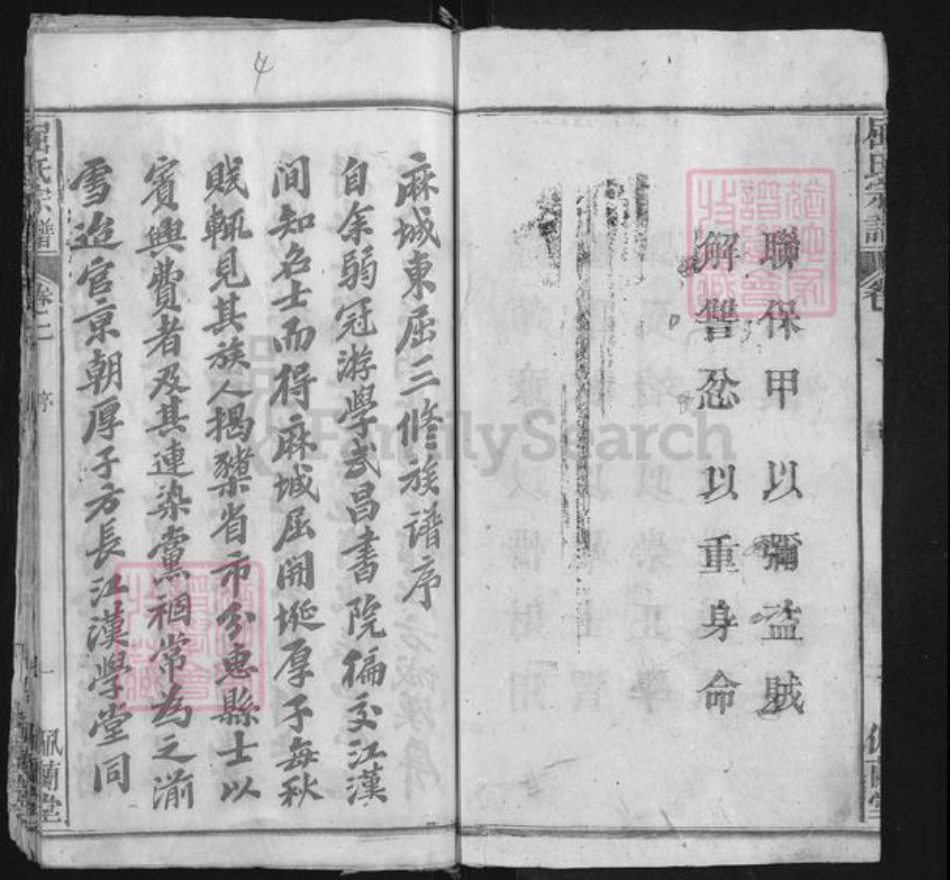 屈氏宗譜
聯保甲以彌盜賊
解讐忿以重身命
麻城東屈三修族譜序
自余弱冠游學武昌書院徧交江漢
間知名士而得麻城屈開埏厚子每秋
賦輒見其族人揭櫫省市分惠縣士以
賓興費者及其連染黨禍常為之湔
雪迨官京朝厚子方長江漢學堂同
屈氏宗譜
卷之一
序
一
佩蘭堂
FamilySearch
4